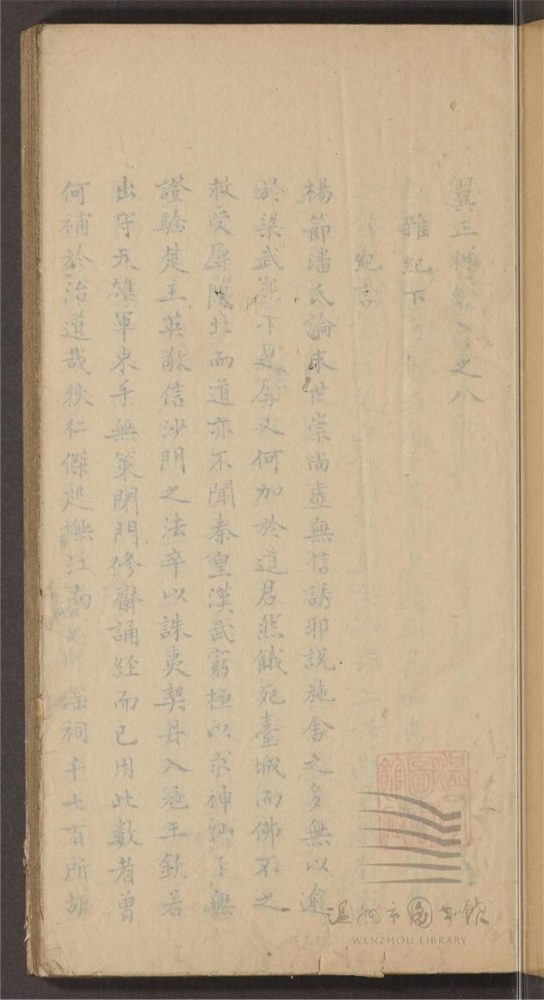 翼正神□之八
雜紀下
紀書
楊節潘氏論末世崇尚虛無信誘邪說施舍之多無以逾
於梁武帝不是辱又何加於道君然餓死臺城而佛不之
救受辱陰北而道亦不聞秦皇漢武窮極以求神仙了無
證驗楚王英敬信沙門之法卒以誅夷契丹入寇王欽若
出守天雄軍束手無策閉門修齋誦經而已用此數者曾
何補於治道哉狄仁傑巡撫江南 淫祠千七百所
温州市圖書館
WENZHOU LIBRARY